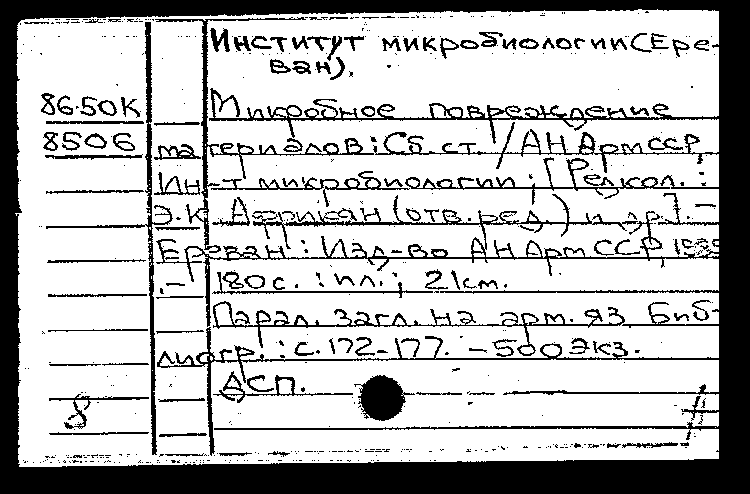 Институт микробиологии (Ере-
ван).
86-50К Микробное повреждение
8506 материалов: Сб. ст. / АН АрмССР,
Ин-т микробиологии; [Редкол.:
Э.К. Африкян (отв. ред.) и др.]. –
Ереван: Изд-во АН АрмССР,
.– 180с. : ил.; 21см.
Парал. загл. на арм. яз. Биб-
лиогр.: с. 172-177. – 500экз.
ДСП.
8